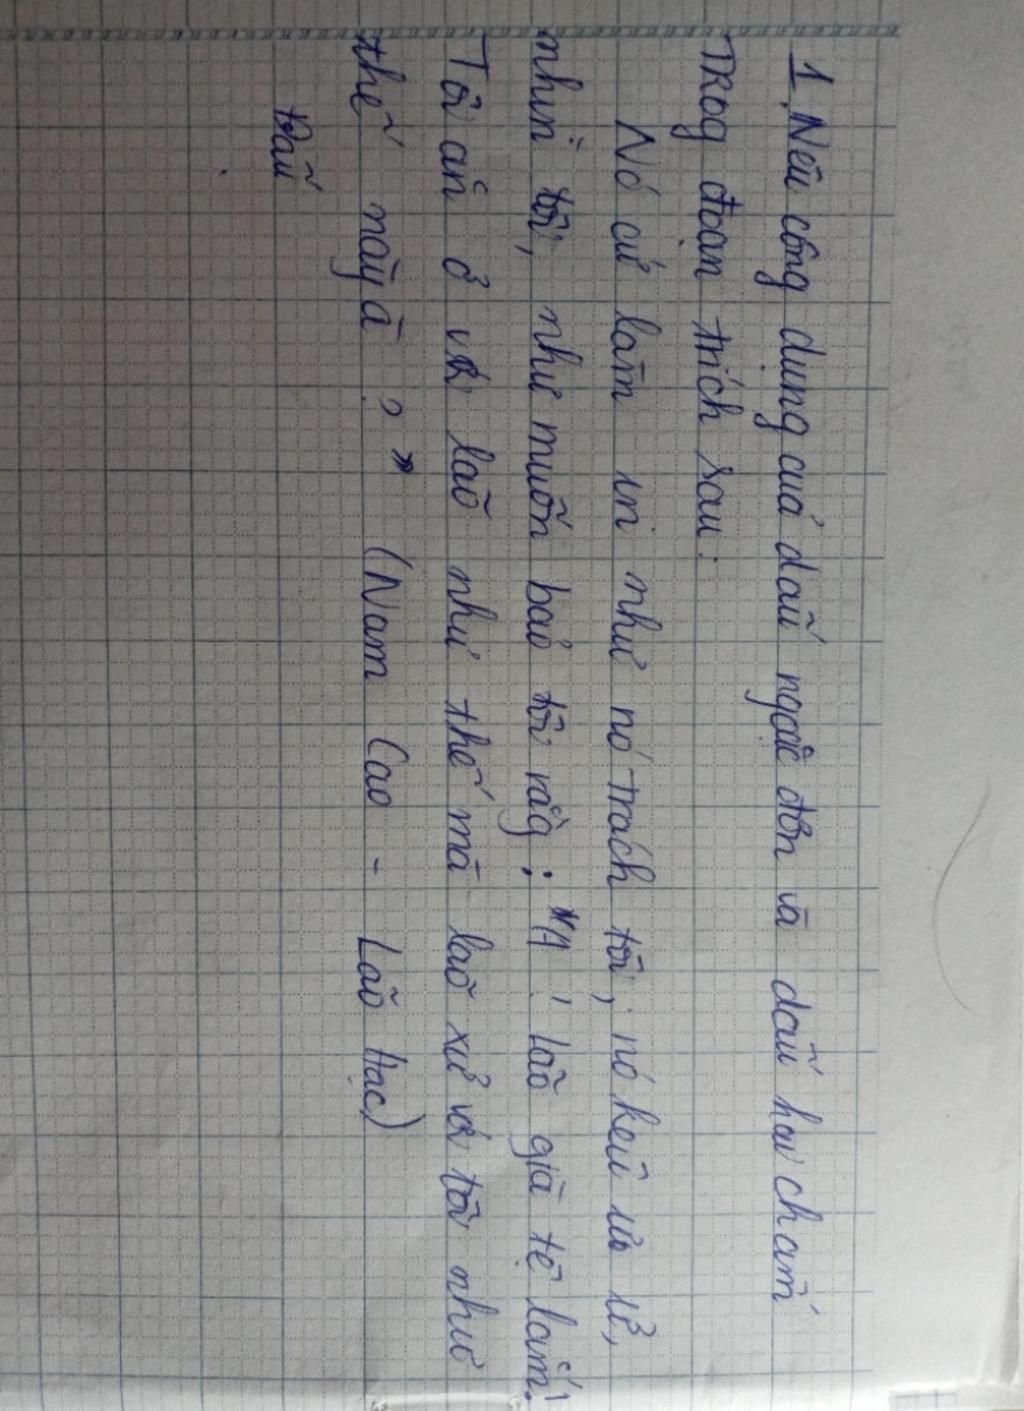 1. Nêu công dụng của dấu ngoặc đơn và dấu hai chấm
Trog đoạn trích sau:
Nó cứ làm in như nó trách tôi; nó kêu ư ử,
nhìn tôi, như muốn bảo tôi rằg: "A! lão già tệ lắm!
Tôi ăn ở với lão như thế mà lão xử với tôi như
thế này à?" (Nam Cao - Lão Hạc)